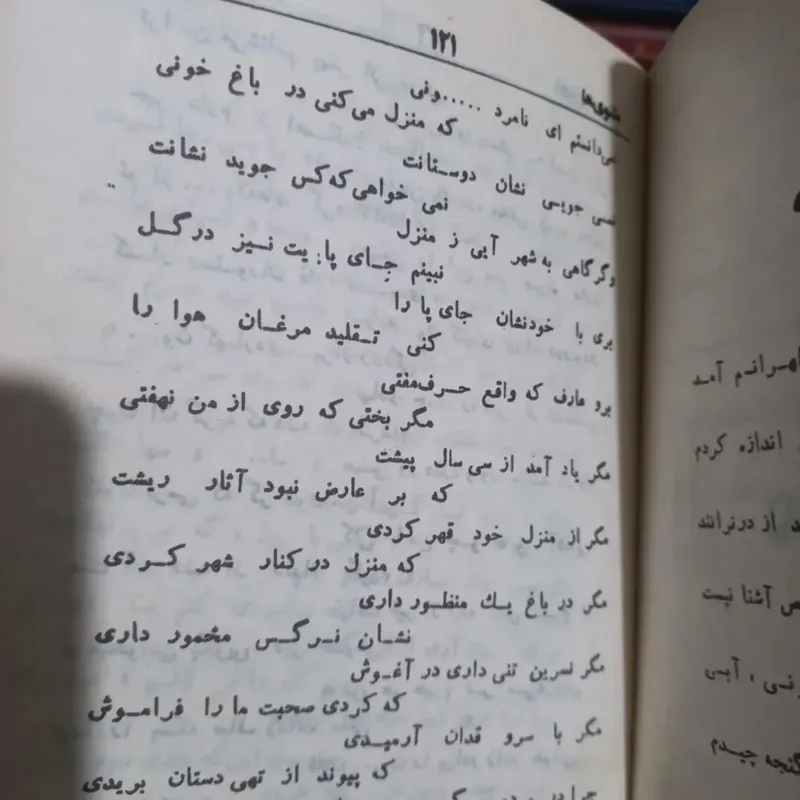 ۱۲۱
مثنوی‌ها
می‌دانستم ای نامرد .....ونی
که منزل می‌کنی در باغ خونی
نمی جویی نشان دوستانت
نمی خواهی که کس جوید نشانت
وگر گاهی به شهر آیی ز منزل
نبینم جای پایت نیز در گل
بری با خودنشان جای پا را
کنی تقلید مرغان هوا را
برو عارف که واقع حرف مفتی
مگر بختی که روی از من نهفتی
مگر یاد آمد از سی سال پیشت
که بر عارض نبود آثار ریشت
مگر از منزل خود قهر کردی
که منزل در کنار شهر کردی
مگر در باغ یک منظور داری
نشان نرگس مخمور داری
مگر نسرین تنی داری در آغوش
که کردی صحبت ما را فراموش
مگر با سرو قدان آرمیدی
که پیوند از تهی دستان بریدی
چرا
هرانم آمد
اندازه کردم
د از در نرانند
ص آشنا نیست
رنی ، آبی
گنجه چیدم